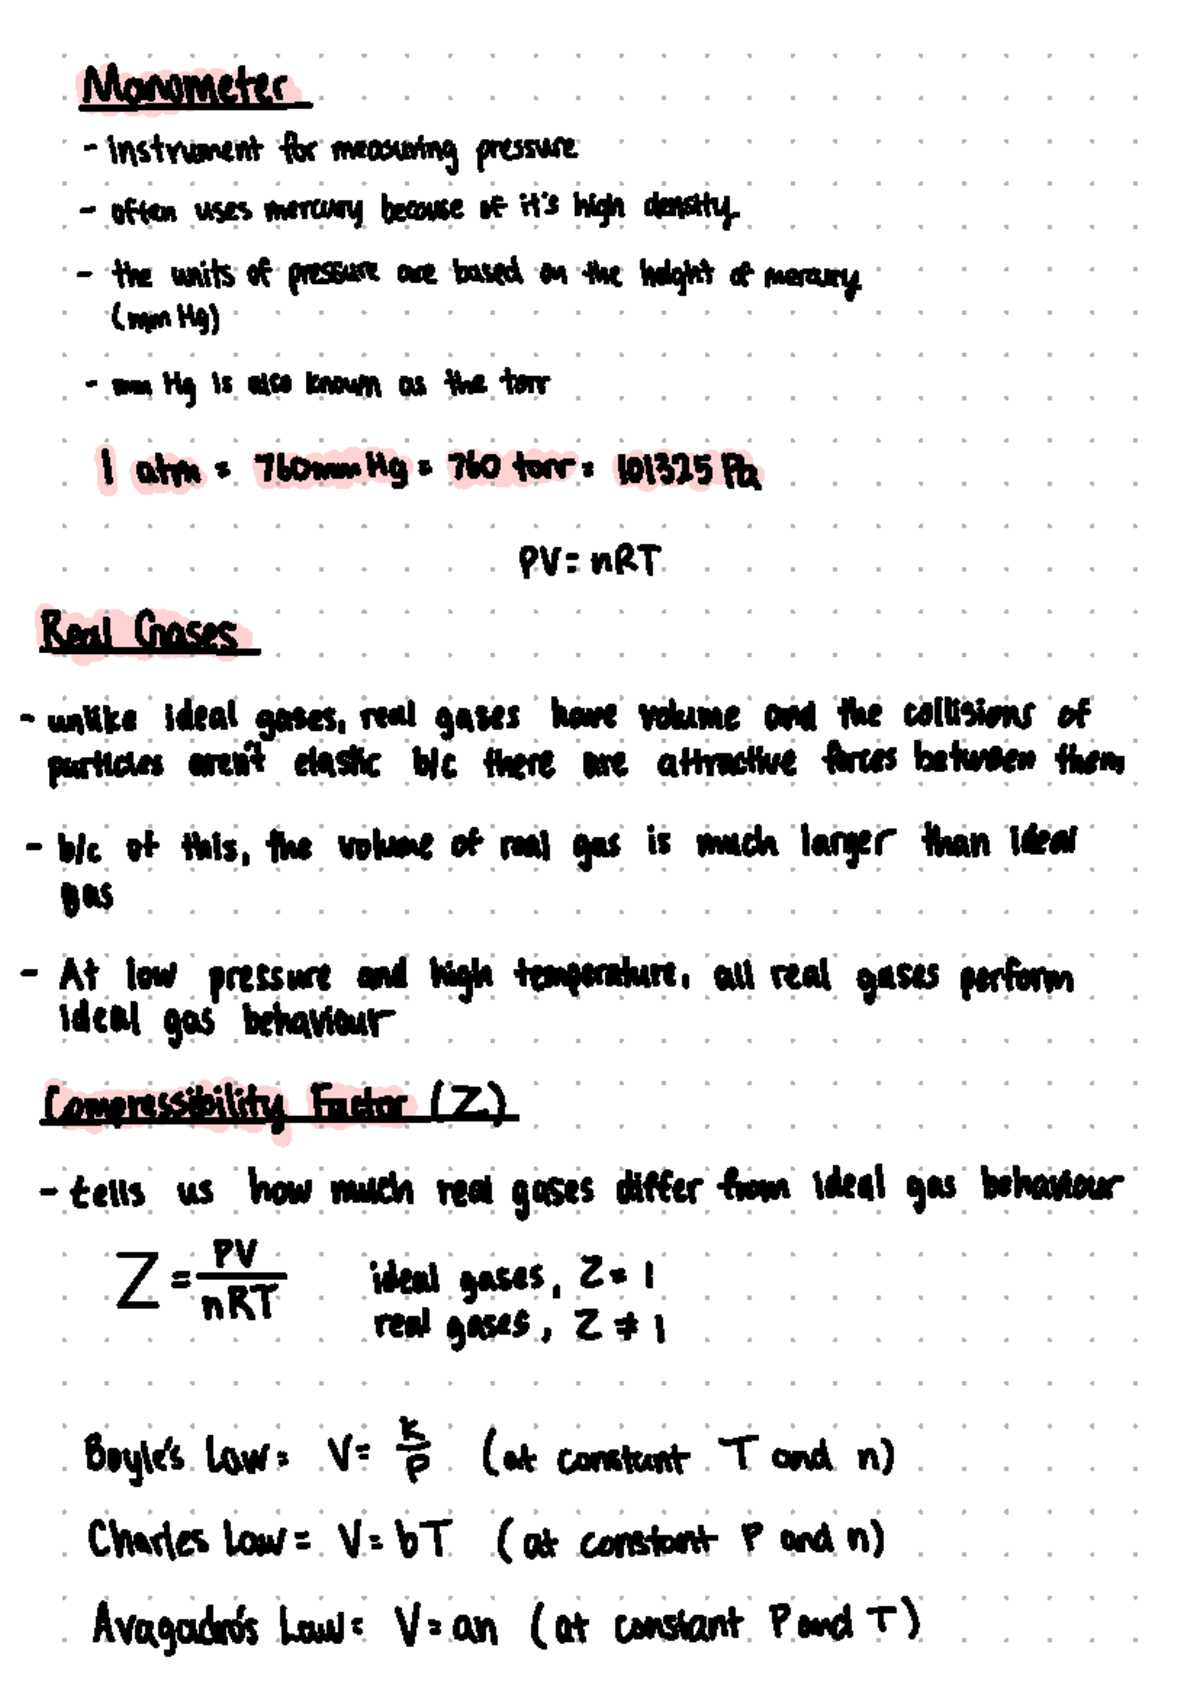 Manometer
- instrument for measuring pressure
- often uses mercury because of it's high density.
- the units of pressure are based on the height of mercury
(mm Hg)
- mm Hg is also known as the torr
1 atm = 760mmHg = 760 torr = 101325 Pa
PV = nRT
Real Gases
- unlike ideal gases, real gases have volume and the collisions of
particles aren't elastic b/c there are attractive forces between them
- b/c of this, the volume of real gas is much larger than ideal
gas
- At low pressure and high temperature, all real gases perform
ideal gas behaviour
Compressibility Factor (Z)
- tells us how much real gases differ from ideal gas behaviour
Z = PV/nRT ideal gases, Z = 1
real gases, Z ≠ 1
Boyle's Law = V = k/P (at constant T and n)
Charles Law = V = bT (at constant P and n)
Avagadro's Law = V = an (at constant P and T)